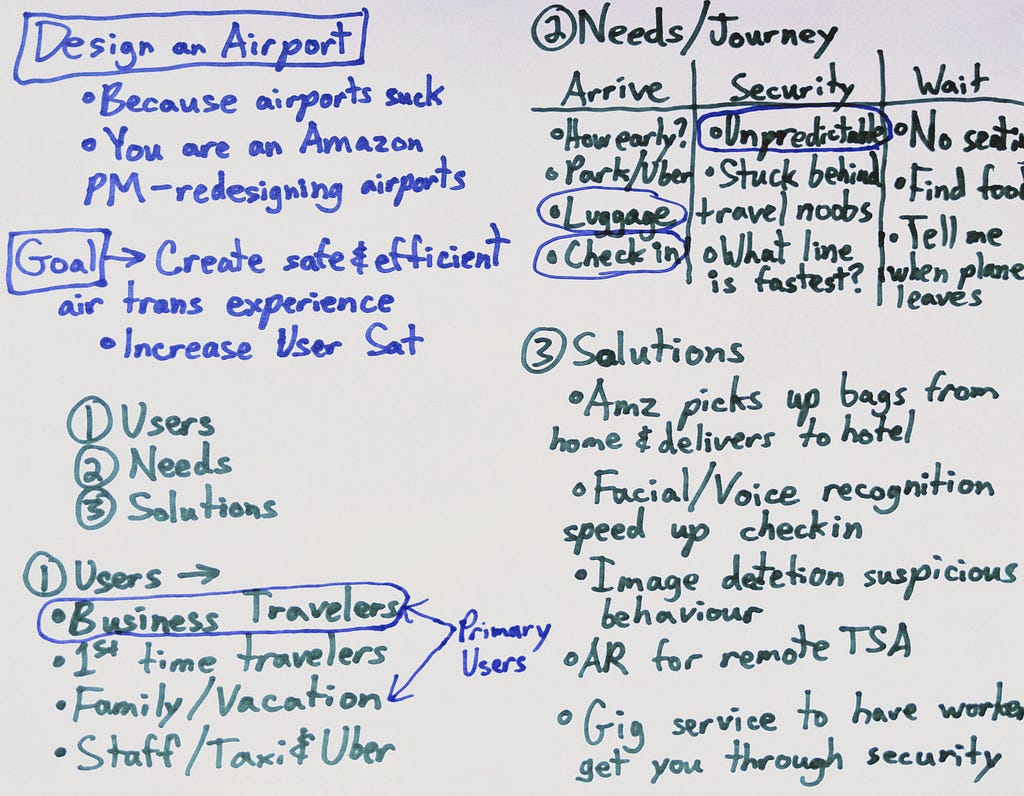 Design an Airport
•Because airports suck
•You are an Amazon
PM-redesigning airports
Goal → Create safe & efficient
air trans experience
•Increase User Sat
① Users
② Needs
③ Solutions
① Users →
•Business Travelers
•1st time travelers
•Family/Vacation
•Staff/Taxi & Uber
Primary
Users
② Needs/Journey
Arrive
•How early?
•Park/Uber
•Luggage
•Check in
Security
•Unpredictable
•Stuck behind
travel noobs
•What line
is fastest?
Wait
•No
•Find food
•Tell me
when plane
leaves
③ Solutions
•Amz picks up bags from
home & delivers to hotel
•Facial/Voice recognition
speed up checkin
•Image detetion suspicious
behaviour
•AR for remote TSA
•Gig service to have worker
get you through security